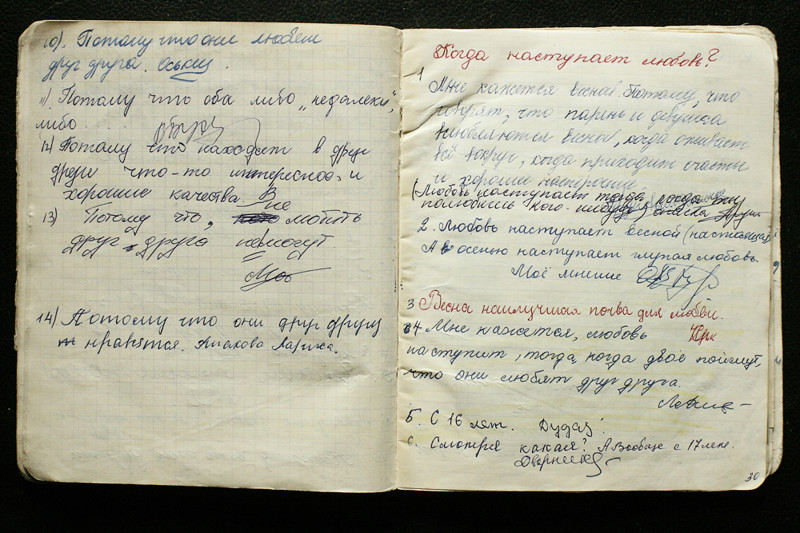 10). Потому что они любят
друг друга. Оськиц
11). Потому что оба либо „недалеки",
либо . . .
12) Потому что находят в друг
друге что-то интересное и
хорошие качества В
13) Потому что, не любить
друг друга не могут
14) Потому что они друг другу
нравятся. Лариса.
8 Когда наступает любовь?
1
Мне кажется весной. Потому, что
говорят, что парень и девушка
влюбляются весной, когда оживает
всё вокруг, когда приходит счастье
и хорошее настроение.
(Любовь наступает тогда, когда
полюбишь кого-нибудь)
2. Любовь наступает весной (настоящая)
А осенью наступает глупая любовь.
Моё мнение
3 Весна наилучшая почва для любви.
4 Мне кажется, любовь
наступит, тогда, когда двое поймут,
что они любят друг друга.
5. С 16 лет.
6. Смотря какая? А вообще с 17 лет.
30